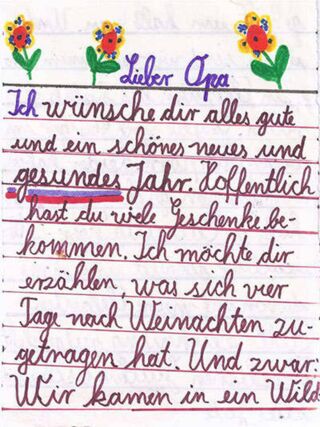 Lieber Opa
Ich wünsche dir alles gute
und ein schönes neues und
gesundes Jahr. Hoffentlich
hast du viele Geschenke be-
kommen. Ich möchte dir
erzählen, was sich vier
Tage nach Weinachten zu-
getragen hat. Und zwar:
Wir kamen in ein Wild